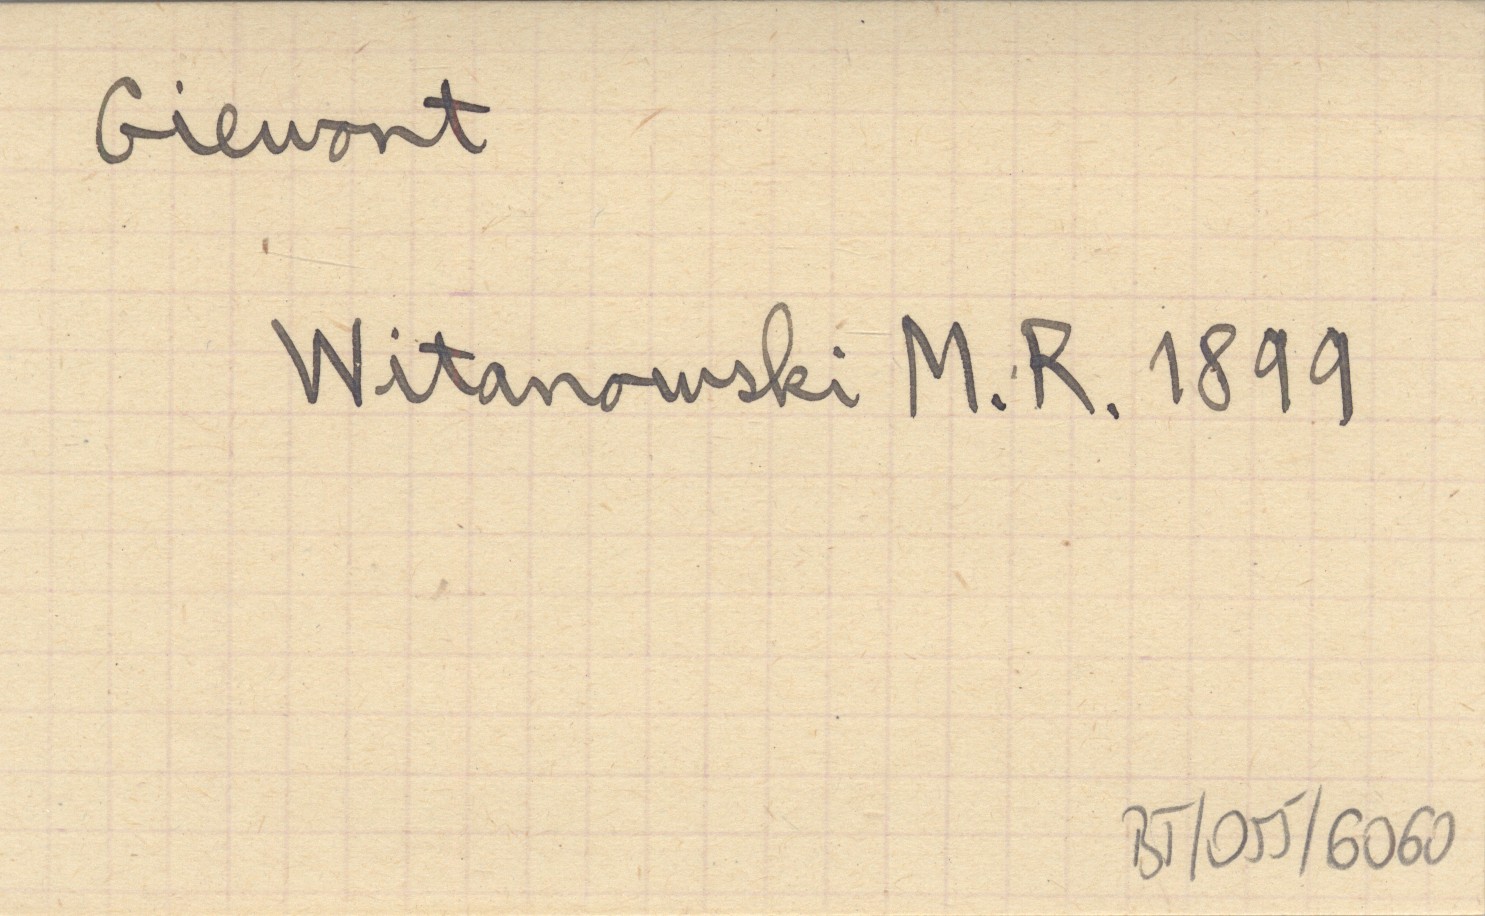 Giewont
Witanowski M.R. 1899
BT/055/6060